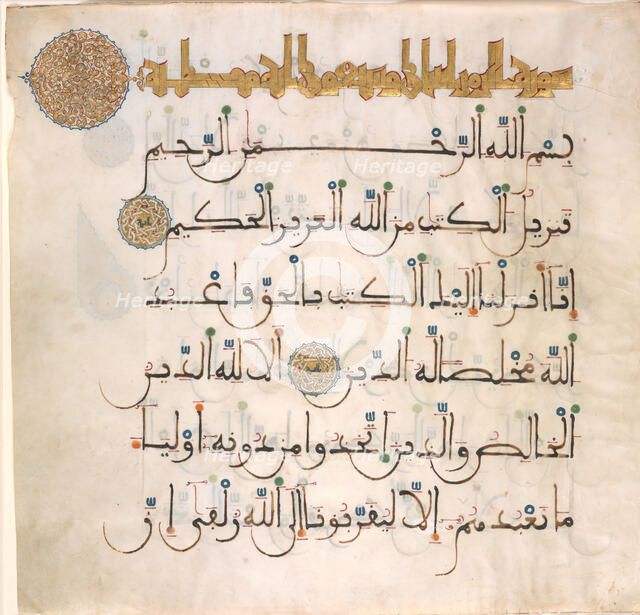 سورة الزمر
بِسْمِ اللَّهِ الرَّحْمَٰنِ الرَّحِيمِ
تَنزِيلُ الْكِتَٰبِ مِنَ اللَّهِ الْعَزِيزِ الْحَكِيمِ
إِنَّا أَنزَلْنَا إِلَيْكَ الْكِتَٰبَ بِالْحَقِّ فَاعْبُدِ
اللَّهَ مُخْلِصًا لَّهُ الدِّينَ أَلَا لِلَّهِ الدِّينُ
الْخَالِصُ وَالَّذِينَ اتَّخَذُوا مِن دُونِهِ أَوْلِيَاءَ
مَا نَعْبُدُهُمْ إِلَّا لِيُقَرِّبُونَا إِلَى اللَّهِ زُلْفَىٰ إِنَّ
Heritage